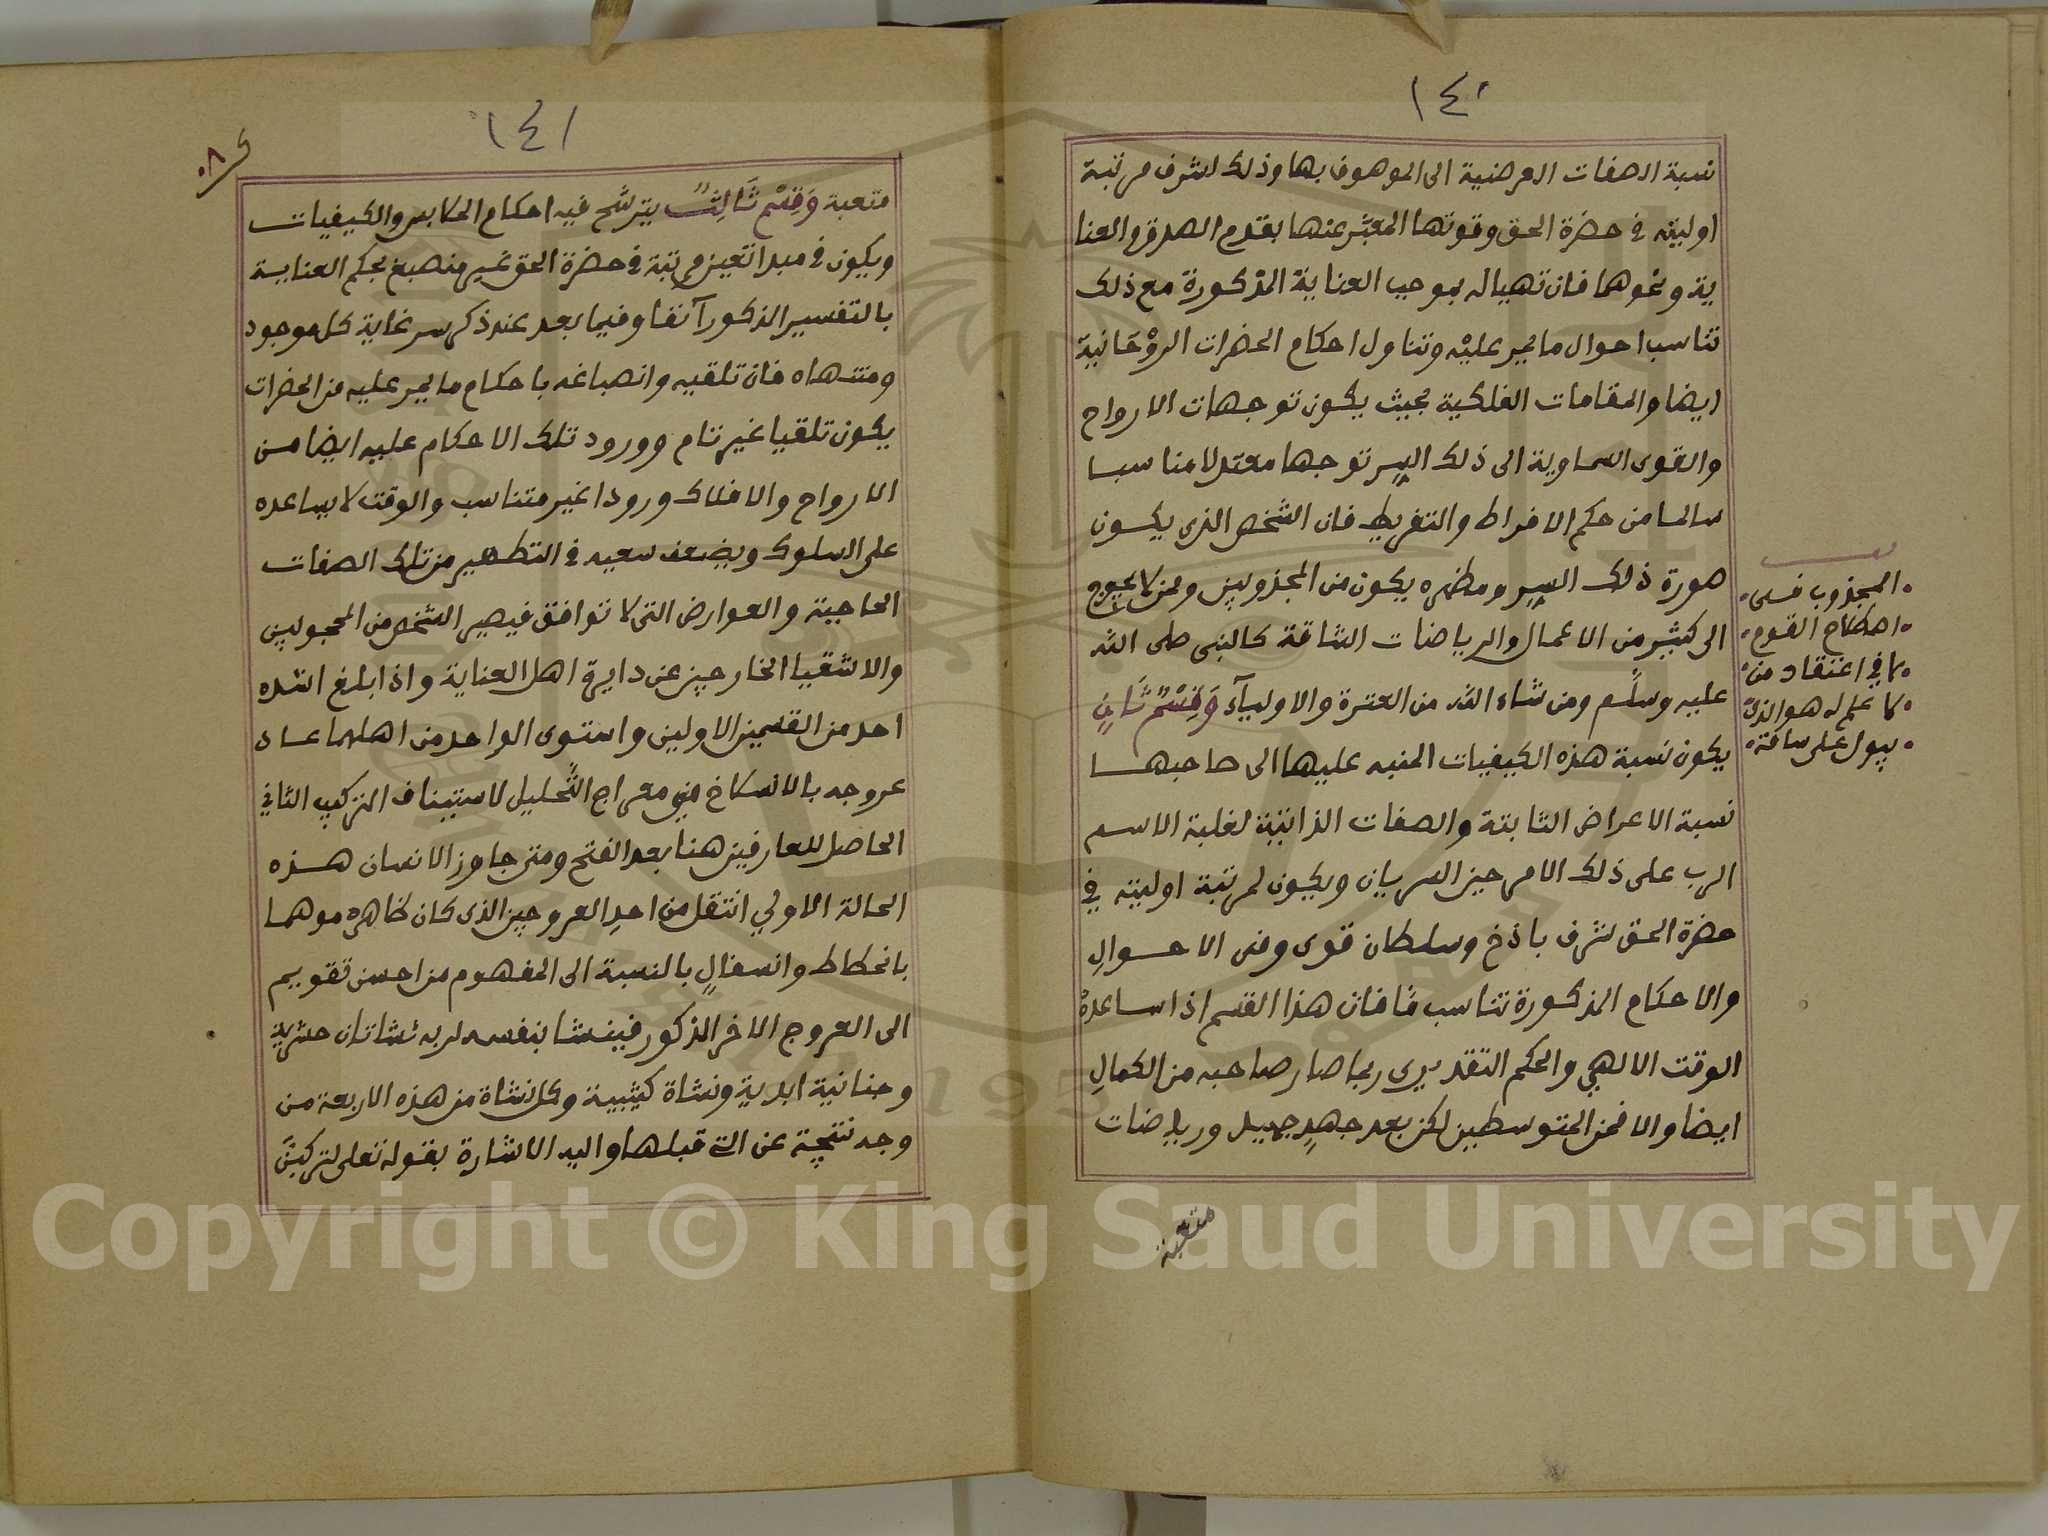 ١٤٠
نسبة الصفات العرضية الى الموصوف بها وذلك لشرف مرتبة
اوليته في حضرة الحق وقوتها المعبّر عنها بقدم الصدق والعنا
ية ونحوهما فان تهيا له بموجب العناية المذكورة مع ذلك
تناسب احوال ما يمر عليْه وتناول احكام الحضرات الروْحَانية
ايضا والمقامات الفلكية بحيث يكون توجهات الارواح
والقوى السماوية الى ذلك السِر توجها معتدلا مناسبا
سالما من حكم الافراط والتفريط فان الشخص الذى يكون
صورة ذلك السر ومظهره يكون من المجذوبين وممن لا يحوج
الى كثير من الاعمال والرياضات الشاقة كالنبى صلى الله
عليه وسلّم ومن شاء الله من العترة والاولياء وَقِسْمٌ ثَانٍ
يكون نسبة هذه الكيفيات المنبه عليها الى صاحبها
نسبة الاعراض الثابتة والصفات الذاتية لغلبة الاسم
الرب على ذلك الامر حين السريان ويكون لمرتبة اوليته في
حضرة الحق شرف باذخ وسلطان قوى وفى الاحوالِ
والاحكام المذكورة تناسب مّا فان هذا القسم اذا ساعدهْ
الوقت الالهي والحكم التقديرى ربما صار صاحبه من الكمالِ
ايضا والا فمن المتوسطين لكن بعد جهدٍ جهيد ورياضات
متعبة
المجذوب فى
اصطلاح القوم
كما علم له هو الذى
يبول على ساقه
١٤١
٨٠
متعبة وَقِسْم ثَالِثٌ يترشح فيه احكام الملابس والكيفيات
ويكون في مبدا تعين مرتبته في حضرة الحق غير منصبغ بحكم العناية
بالتفسير المذكور آنفا وفيما بعد عند ذكر سر غاية كل موجود
ومنتهاه فان تلقيه وانصباغه باحكام ما يمر عليه من الحضرات
يكون تلقيا غير تام وورود تلك الاحكام عليه ايضا من
الارواح والافلاك ورودا غير متناسب والوقت لا يساعده
على السلوك ويضعف سعيه في التطهير من تلك الصفات
الحاجبة والعوارض التى لا توافق فيصير الشخص من المحجوبين
والاشقيا الخارجين عن دايرة اهل العناية واذا بلغ اشده
احد من القسمين الاولين واستوى الواحد من اهلهما عاد
عروجه بالانسلاخ في معراج التَّحليل لاستيناف التركيب الثاني
الحاصل للعارفين هنا بعد الفتح ومتى جاوز الانسان هذه
الحالة الاولي انتقل من احدِ العروجين الذى كان ظاهره موهما
بانحطاط وانسفالٍ بالنسبة الى المفهوم من احسن تقويم
الى العروج الاخر المذكور فينشا بنفسه لربه نشاتان حشرية
وجنانية ابدية ونشاة كثيبية وكل نشاة من هذه الاربعة من
وجه نتيجة عن التى قبلها واليه الاشارة بقوله تعلى لتركبنَّ
Copyright © King Saud University